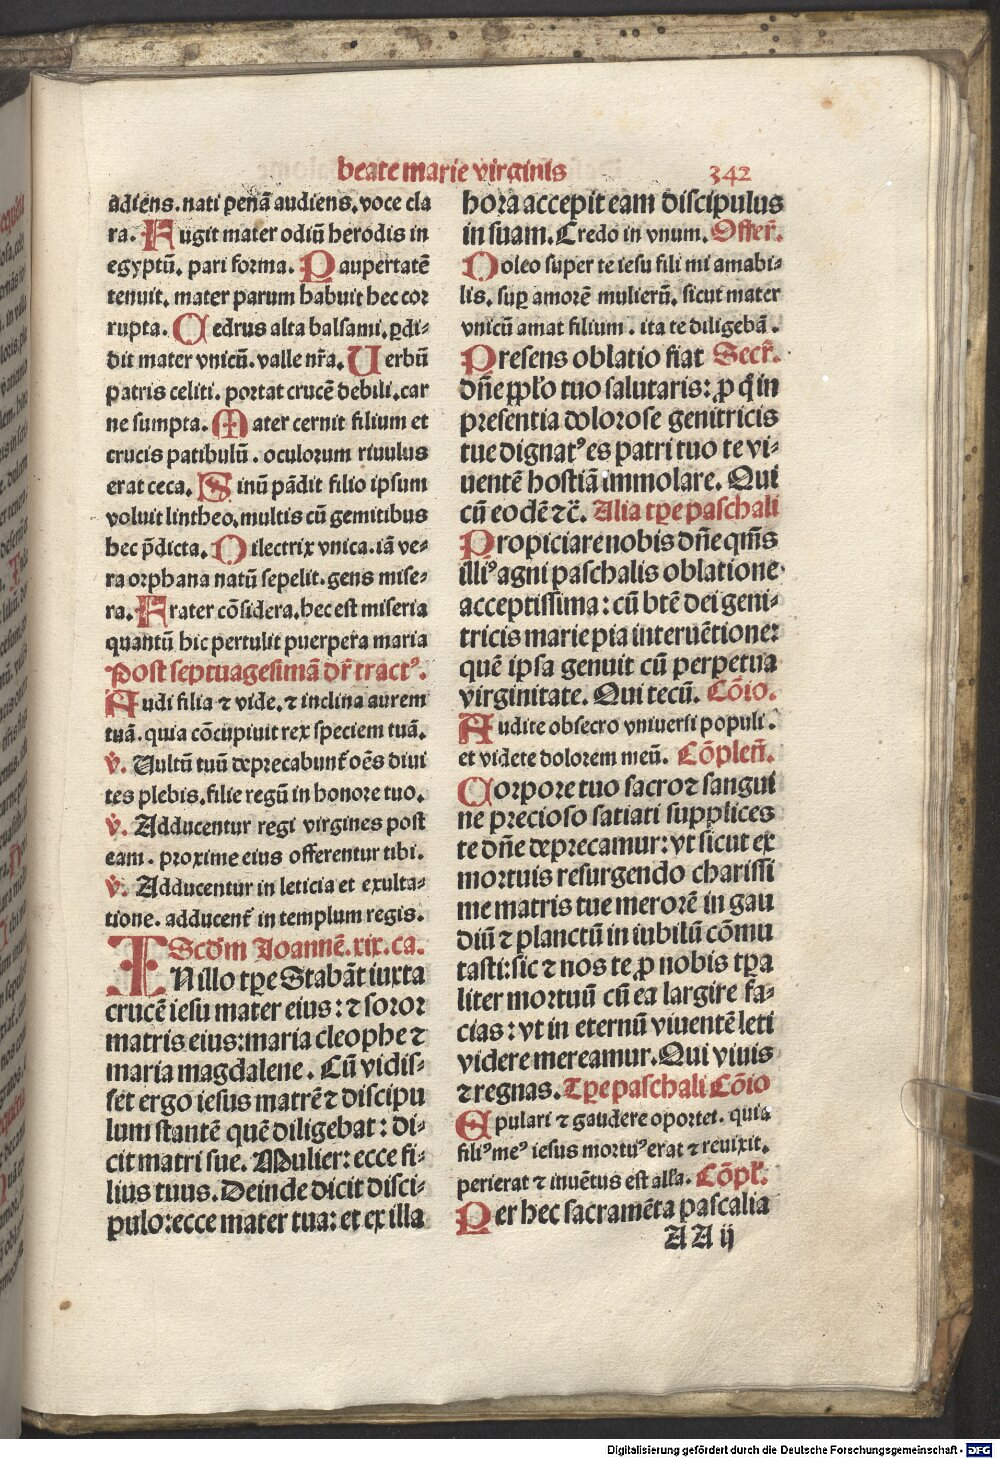 beate marie virginis 342
adiens. nati penā audiens. voce cla
ra. Fugit mater odiū herodis in
egyptū. pari forma. Paupertatē
tenuit. mater parum habuit hec cor
rupta. Cedrus alta balsami. ꝑdi-
dit mater vnicū. valle nr̄a. Uerbū
patris celiti. portat crucē debili. car
ne sumpta. Mater cernit filium et
crucis patibulū. oculorum riuulus
erat ceca. Sinū pādit filio ipsum
voluit lintheo. multis cū gemitibus
hec p̄dicta. Dilectrix vnica. iā ve-
ra orphana natū sepelit. gens mise-
ra. Frater cōsidera. hec est miseria
quantū hic pertulit puerpera maria
Post septuagesimā dr̄ tractꝰ.
Audi filia ⁊ vide. ⁊ inclina aurem
tuā. quia cōcupiuit rex speciem tuā.
v̇. Uultū tuū deprecabunt̄ oēs diui
tes plebis. filie regū in honore tuo.
v̇. Adducentur regi virgines post
eam. proxime eius offerentur tibi.
v̇. Adducentur in leticia et exulta-
tione. adducent̄ in templum regis.
Scd̄m Joannē. xix. ca.
IN illo tꝑe Stabāt iuxta
crucē iesu mater eius: ⁊ soror
matris eius: maria cleophe ⁊
maria magdalene. Cū vidis-
set ergo iesus matrē ⁊ discipu
lum stantē quē diligebat: di-
cit matri sue. Mulier: ecce fi-
lius tuus. Deinde dicit disci-
pulo: ecce mater tua: et ex illa
hora accepit eam discipulus
in suam. Credo in vnum. Offer̄.
Doleo super te iesu fili mi amabi-
lis. suꝑ amorē mulierū. sicut mater
vnicū amat filium. ita te diligebā.
Presens oblatio fiat Secr̄.
dn̄e pp̄lo tuo salutaris: ꝓ q̄ in
presentia dolorose genitricis
tue dignatꝰ es patri tuo te vi-
uentē hostiā immolare. Qui
cū eodē ⁊c̄. Alia tꝑe paschali
Propiciare nobis dn̄e qm̄s
illiꝰ agni paschalis oblatione
acceptissima: cū btē dei geni-
tricis marie pia interuētione:
quē ipsa genuit cū perpetua
virginitate. Qui tecū. Cōio.
Audite obsecro vniuersi populi.
et videte dolorem meū. Cōplen̄.
Corpore tuo sacro ⁊ sangui
ne precioso satiati supplices
te dn̄e deprecamur: vt sicut ex
mortuis resurgendo charissi
me matris tue merorē in gau
diū ⁊ planctū in iubilū cōmu
tasti: sic ⁊ nos te ꝓ nobis tꝑa
liter mortuū cū ea largire fa-
cias: vt in eternū viuentē leti
videre mereamur. Qui viuis
⁊ regnas. Tꝑe paschali Cōio
Epulari ⁊ gaudere oportet. quia
filiꝰ meꝰ iesus mortuꝰ erat ⁊ reuixit.
perierat ⁊ inuētus est all̄a. Cōpl̄.
Per hec sacramēta pascalia
AA ij
Digitalisierung gefördert durch die Deutsche Forschungsgemeinschaft - DFG